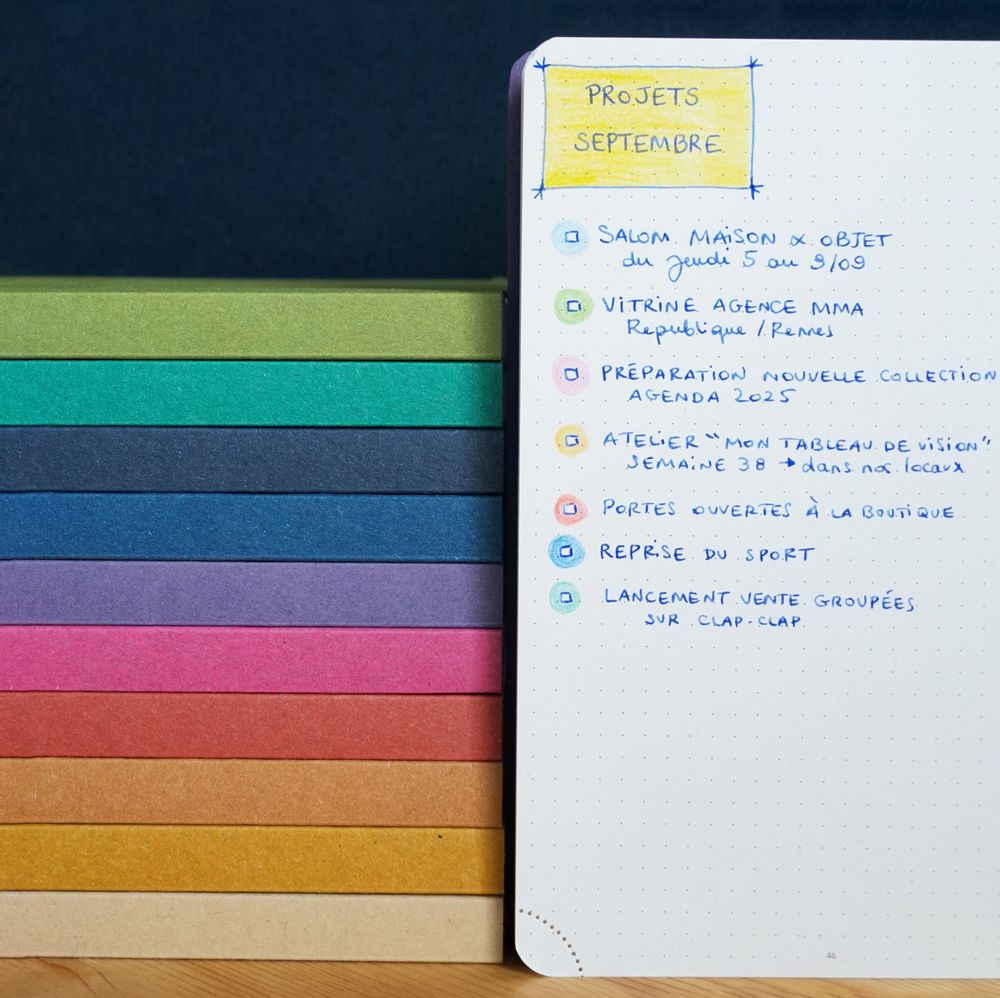 PROJETS
SEPTEMBRE
SALON MAISON & OBJET
du jeudi 5 au 9/09
VITRINE AGENCE MMA
Republique / Rennes
PRÉPARATION NOUVELLE COLLECTION
AGENDA 2025
ATELIER "MON TABLEAU DE VISION"
SEMAINE 38 → dans nos locaux
PORTES OUVERTES À LA BOUTIQUE
REPRISE DU SPORT
LANCEMENT VENTE GROUPÉES
SUR CLAP-CLAP
46